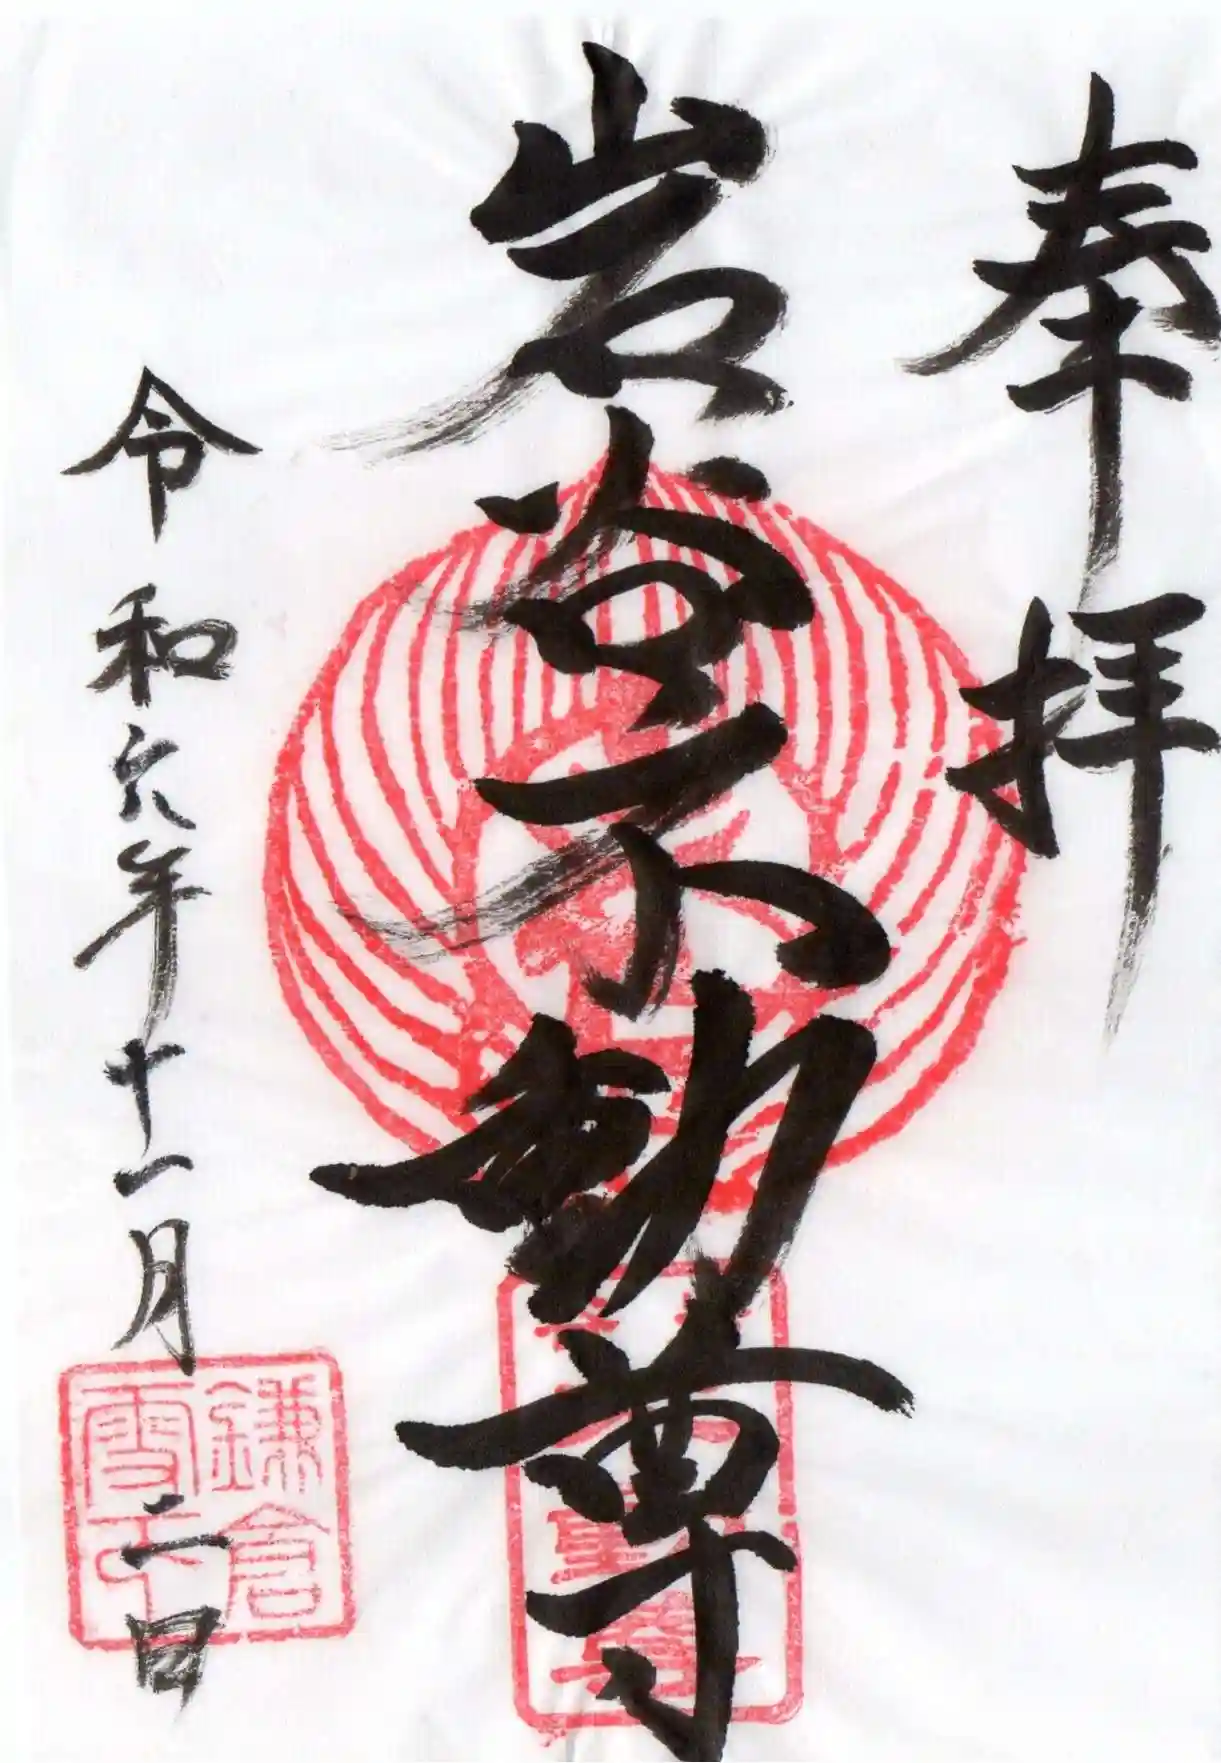 奉拝
岩堂不動尊
令和六年十一月二日
鎌倉
雪下